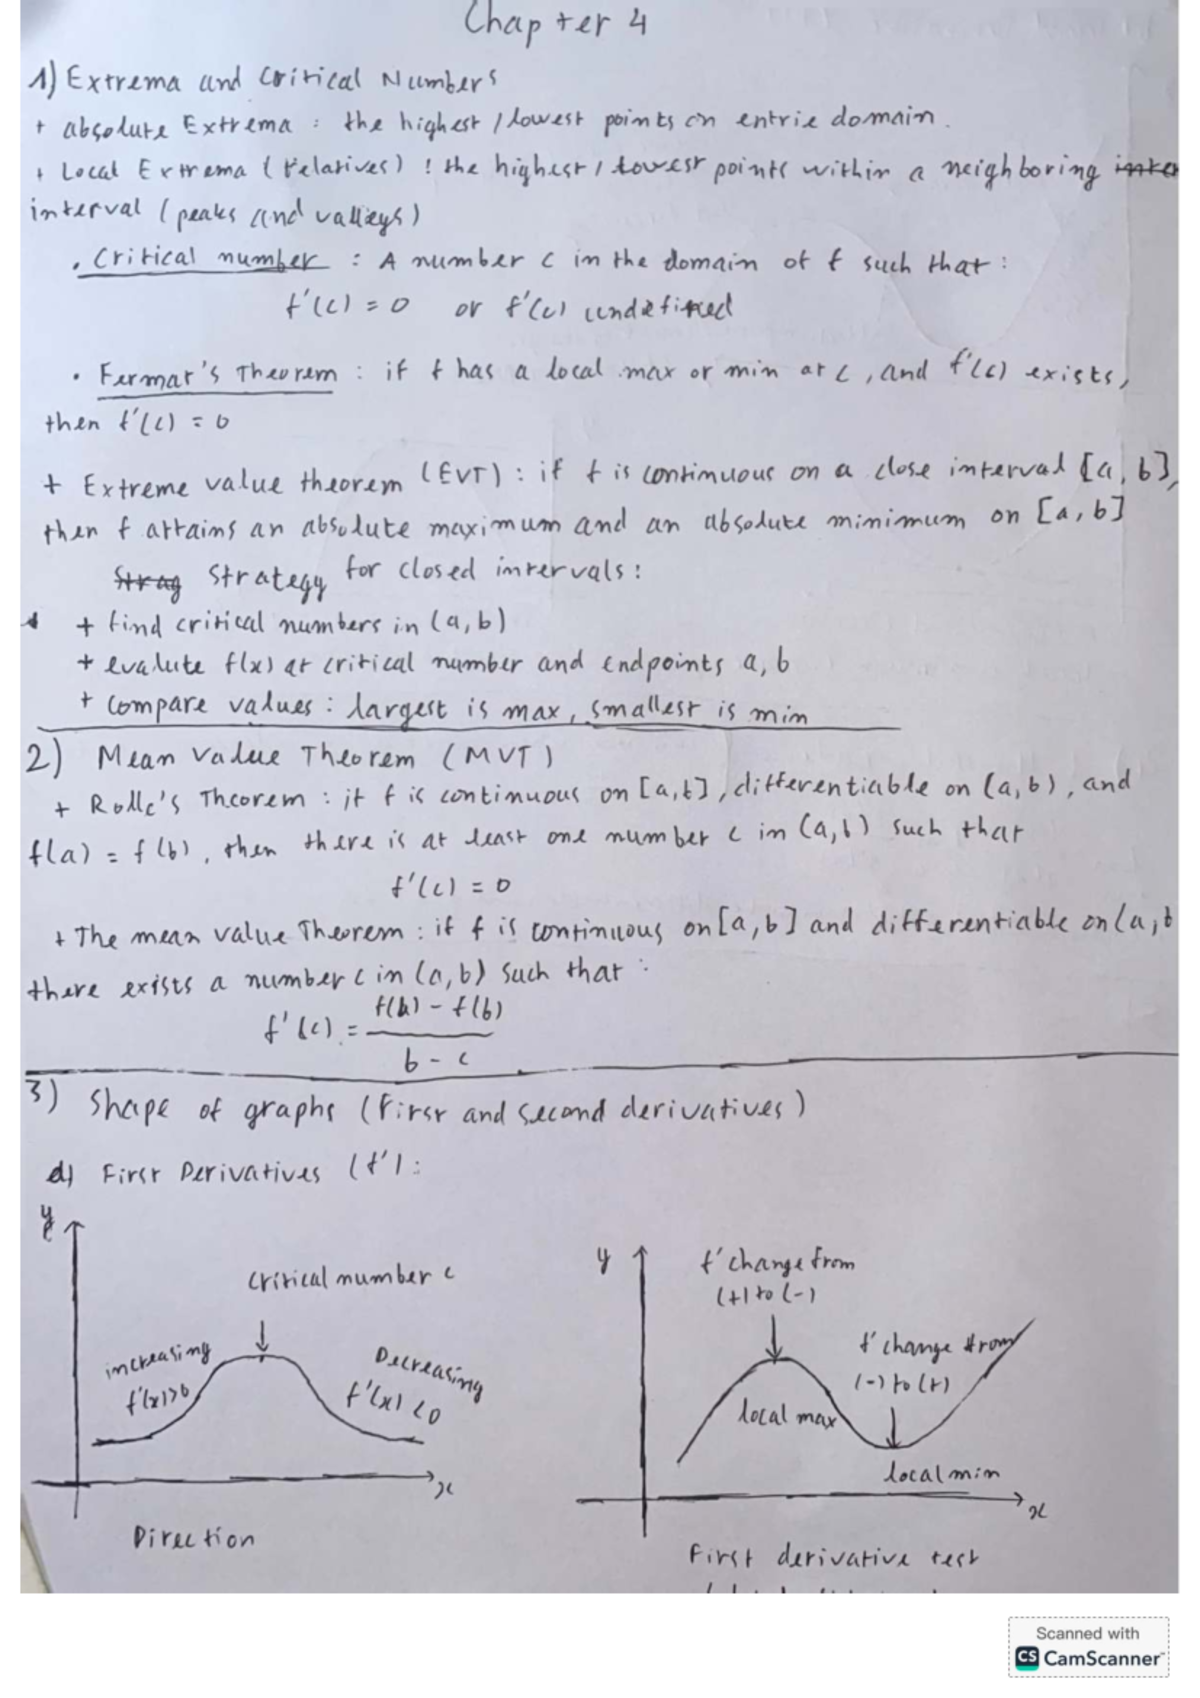 Chapter 4
1) Extrema and Critical Numbers
+ absolute Extrema : the highest / lowest points on entrie domain.
+ Local Extrema (Relatives) : the highest / lowest points within a neighboring
interval (peaks and valleys)
. Critical number : A number c in the domain of f such that :
f'(c) = 0 or f'(c) undefined
• Fermat's Theorem : if f has a local max or min at c, and f'(c) exists,
then f'(c) = 0
+ Extreme value theorem (EVT) : if f is continuous on a close interval [a, b],
then f attains an absolute maximum and an absolute minimum on [a, b]
Strag Strategy for closed intervals :
+ find critical numbers in (a, b)
+ evalute f(x) at critical number and endpoints a, b
+ compare values : largest is max, smallest is min
2) Mean Value Theorem (MVT)
+ Rolle's Theorem : if f is continuous on [a, b], differentiable on (a, b), and
f(a) = f(b), then there is at least one number c in (a, b) such that
f'(c) = 0
+ The mean value Theorem : if f is continuous on [a, b] and differentiable on (a, b
there exists a number c in (a, b) such that :
f'(c) = f(b) - f(b)
b - c
3) Shape of graphs (First and second derivatives)
a) First Derivatives (f') :
y
critical number c
increasing
f'(x)>0
Decreasing
f'(x) <0
x
Direction
y
f' change from
(+) to (-)
f' change from
(-) to (+)
local max
local min
x
First derivative test
Scanned with
CS CamScanner